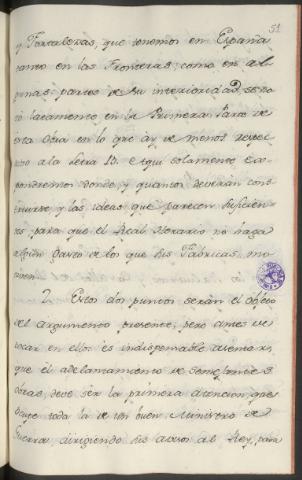 51
y Fortalezas, que tenemos en España
tanto en las Fronteras, como en al-
gunas partes de su interioridad, se no-
tó latamente en la Primera Parte de
esta Obra en lo que ay de menos respec-
to a la letra B. Aqui solamente ex-
pondremos donde, y quantos deverán cons-
truirse, y las ideas que parecen suficien-
tes para que el Real Herario no haga
el gasto de los que sus Fabricas, mo-
2. Estos dos puntos serán el objeto
del argumento presente; pero antes de
tocar en ellos es indispensable sentar,
que el adelantamiento de semejantes
obras, deve ser la primera atencion, que
ocupe toda la de un buen Ministro de
Guerra, dirigiendo sus avisos al Rey, para